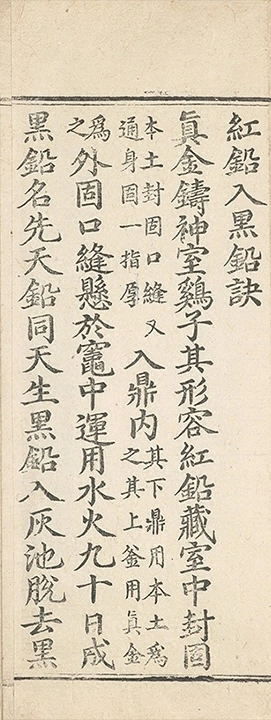 紅鉛入黑鉛訣
眞金鑄神室鷄子其形容紅鉛藏室中封固
本土封固口縫又
通身固一指厚
入鼎内
其下鼎用本土爲
之其上釜用眞金
爲
之
外固口縫懸於竈中運用水火九十日成
黑鉛名先天鉛同天生黑鉛入灰池脫去黑